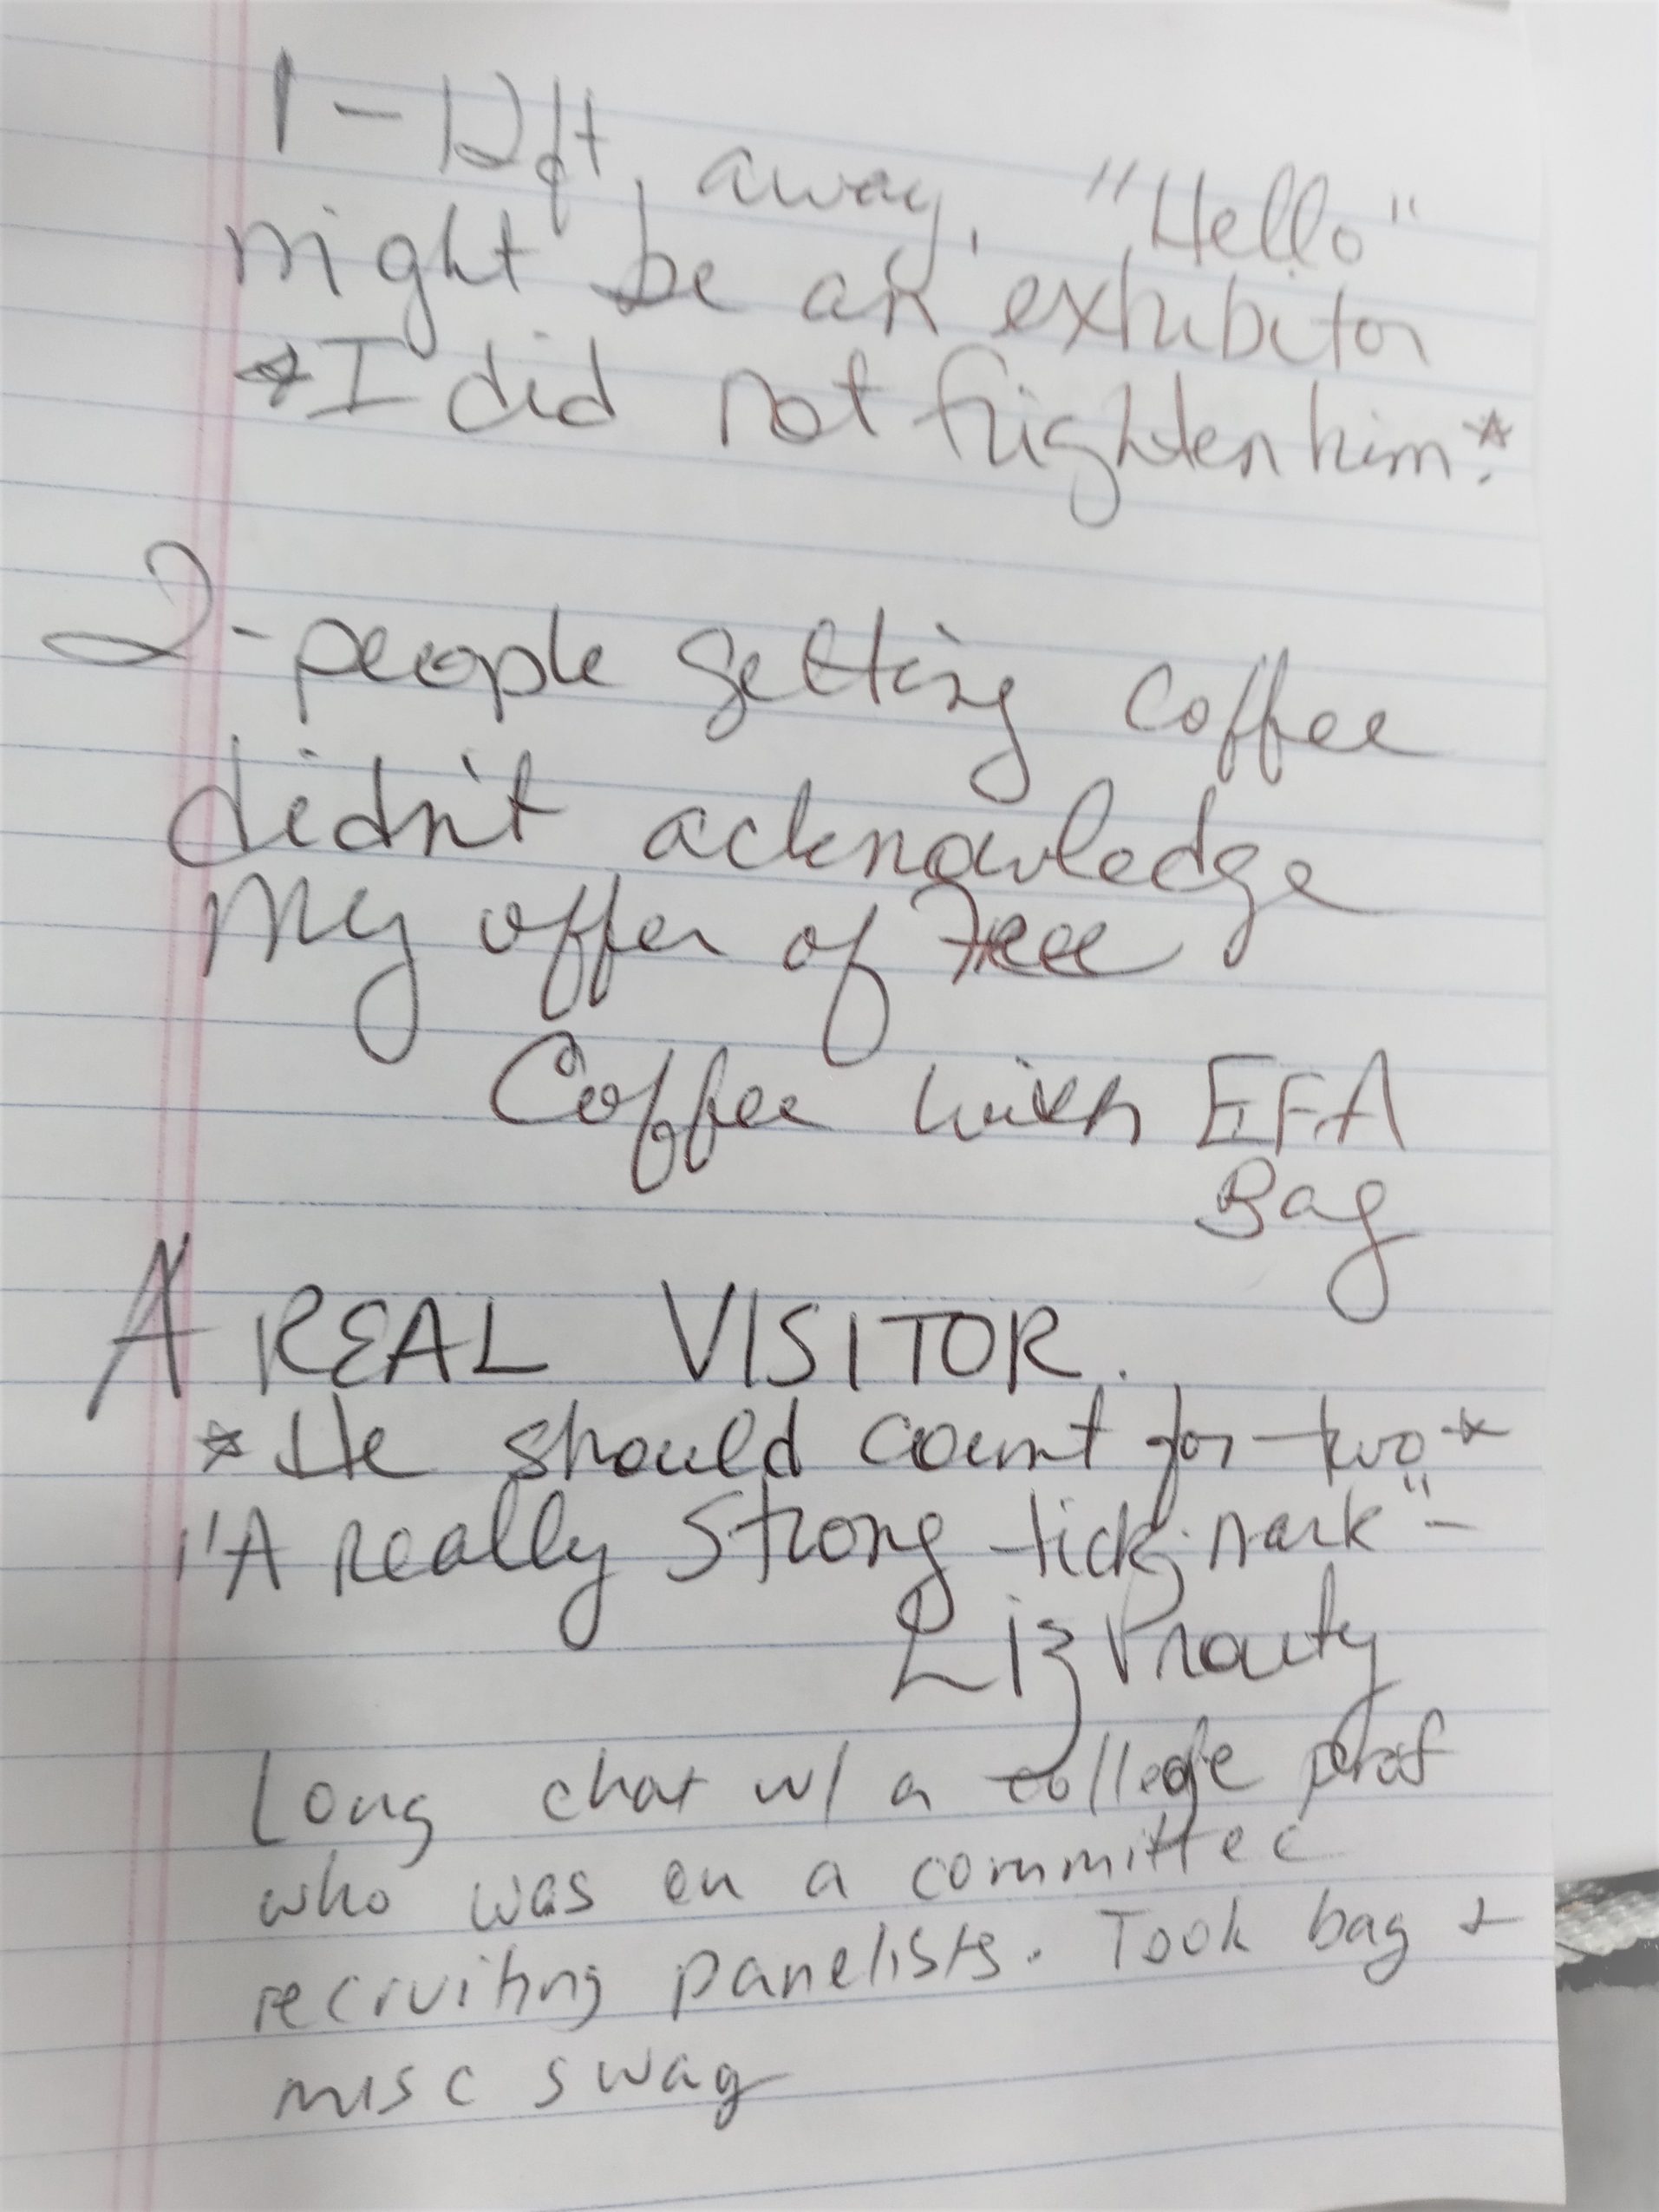 1 - 12ft, away, "Hello"
might be an exhibitor
*I did not frighten him.*
2 - people getting coffee
didn't acknowledge
My offer of Free
Coffee with EFA
Bag
A REAL VISITOR.
*He should count for two*
"A really strong tick mark" -
Liz Prouty
Long chat w/ a college prof
who was on a committee
recruiting panelists. Took bag +
misc swag